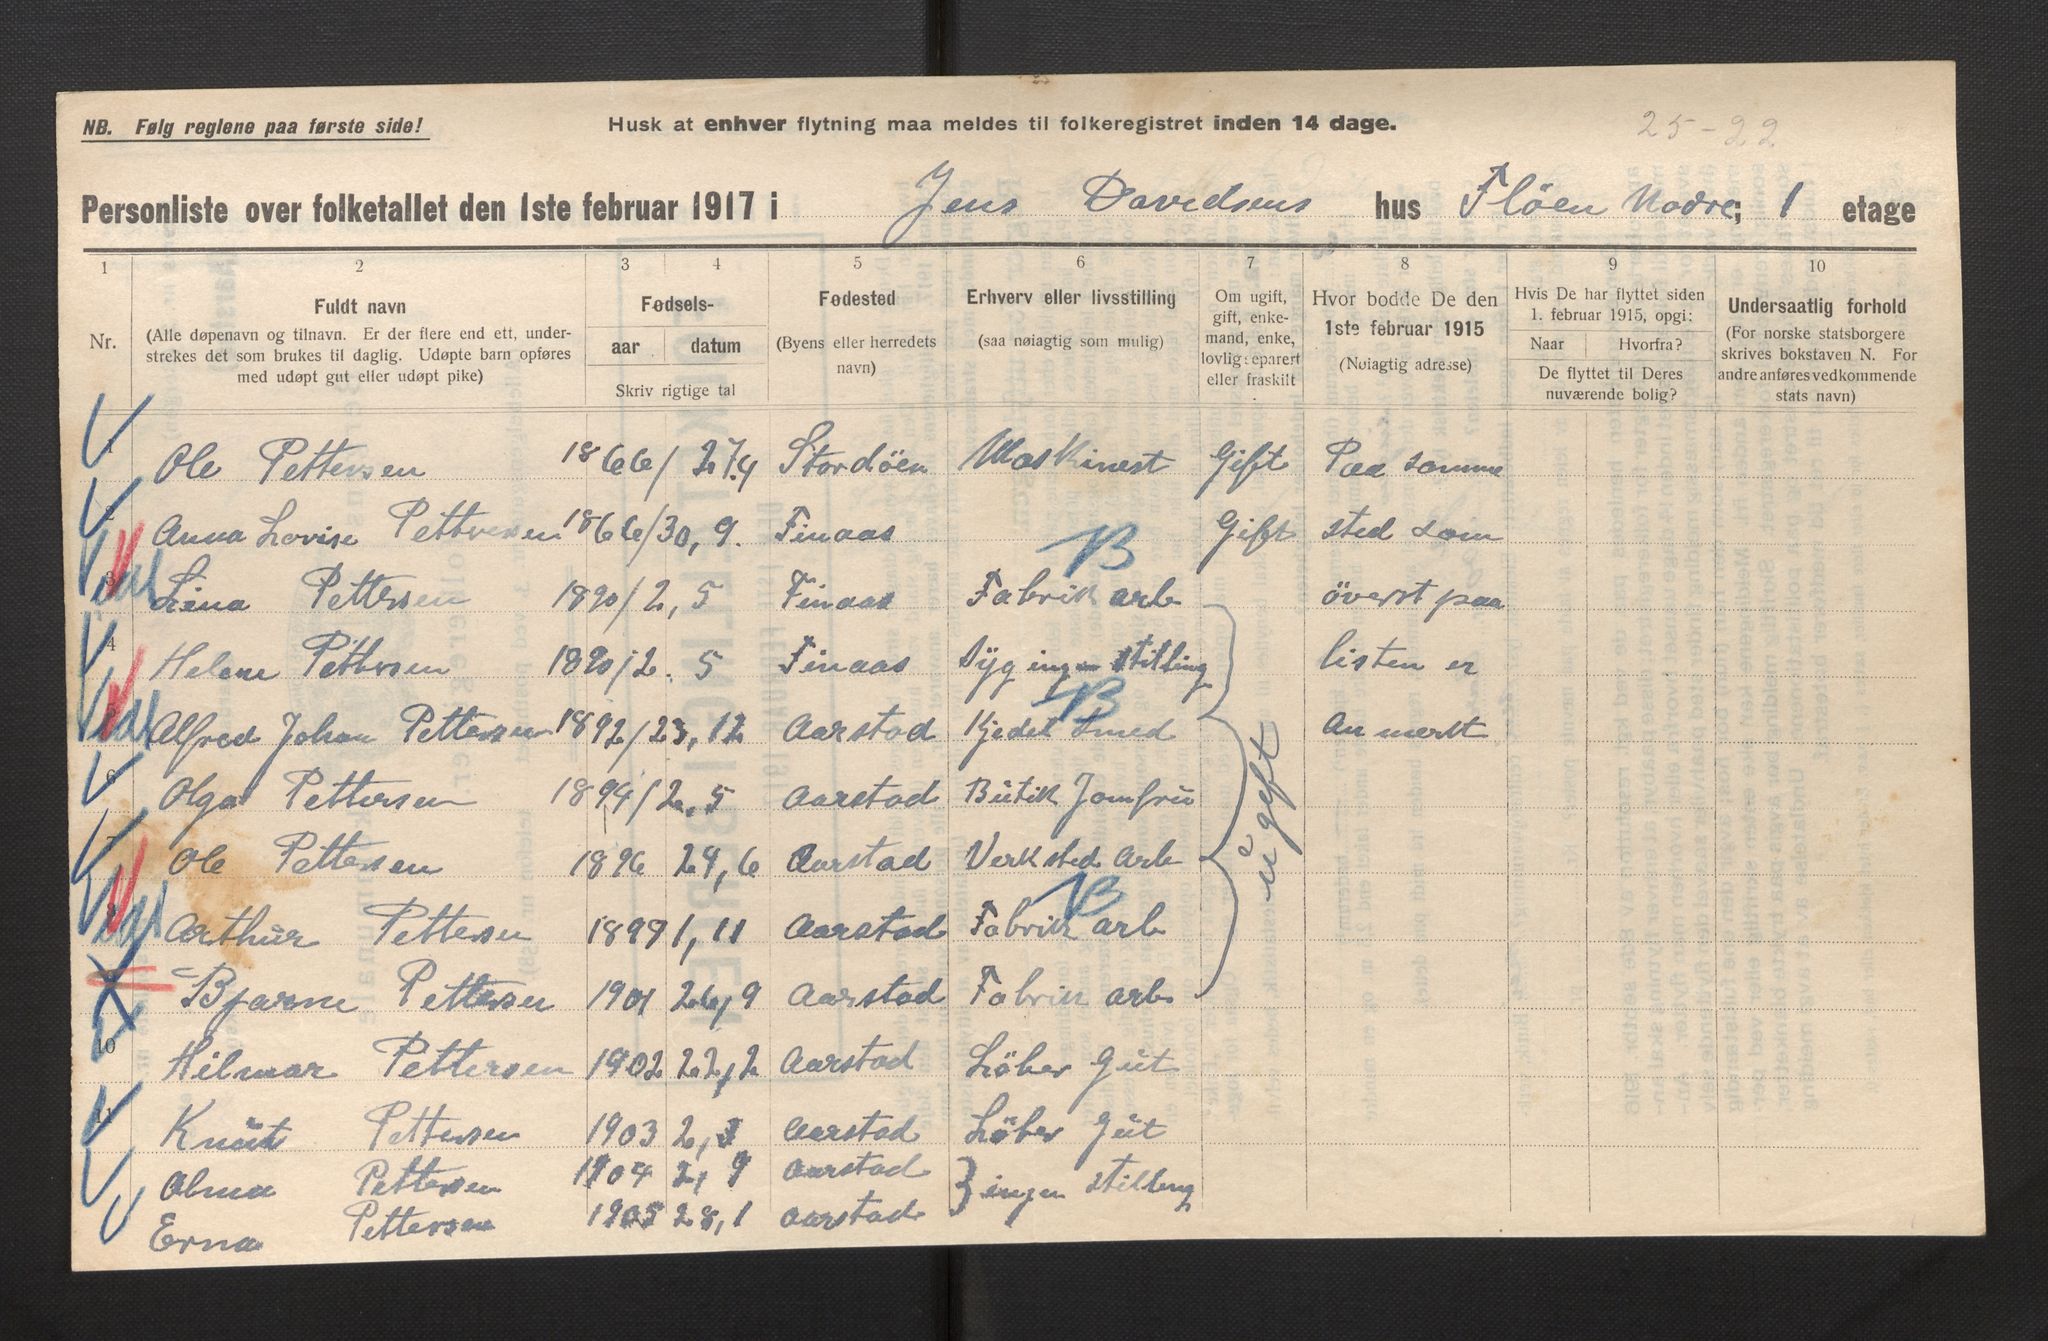 NB. Følg reglene paa første side!
Husk at enhver flytning maa meldes til folkeregistret inden 14 dage.
25-22
Personliste over folketallet den 1ste februar 1917 i Jens Davidsens hus Fløen Nodre; 1 etage
1 2 3 4 5 6 7 8 9 10
Nr.
Fuldt navn
(Alle døpenavn og tilnavn. Er der flere end ett, under-
strekes det som brukes til daglig. Udøpte barn opføres
med udøpt gut eller udøpt pike)
Fødsels-
aar datum
Skriv rigtige tal
Fødested
(Byens eller herredets
navn)
Erhverv eller livsstilling
(saa nøiagtig som mulig)
Om ugift,
gift, enke-
mand, enke,
lovlig separert
eller fraskilt
Hvor bodde De den
1ste februar 1915
(Nøiagtig adresse)
Hvis De har flyttet siden
1. februar 1915, opgi:
Naar Hvorfra?
De flyttet til Deres
nuværende bolig?
Undersaatlig forhold
(For norske statsborgere
skrives bokstaven N. For
andre anføres vedkommende
stats navn)
1 Ole Pettersen 1866/ 27,4 Stordöen Maskinest Gift Paa samme
2 Anna Lovise Pettersen 1866/30, 9. Finaas Gift sted som
3 Lina Pettersen 1890/2, 5 Finaas Fabrik arb B överst paa
4 Helene Pettersen 1890/2. 5 Finaas Syg ingen stilling listen er
5 Alfred Johan Pettersen 1892/23, 12 Aarstad Kjedel Smed B an merkt
6 Olga Pettersen 1894/2, 5 Aarstad Butik Jomfru
ugift
7 Ole Pettersen 1896 24, 6 Aarstad Verksted Arb
8 Arthur Pettersen 1899 1, 11 Aarstad Fabrik arb B
Bjarne Pettersen 1901 26, 9 Aarstad Fabrik arb
10 Hilmar Pettersen 1902 22, 2 Aarstad Löber Gut
11 Knut Pettersen 1903 2, 3 Aarstad Löber Gut
Alma Pettersen 1904 2, 9 Aarstad } ingen stilling
Erna Pettersen 1905 28, 1 Aarstad